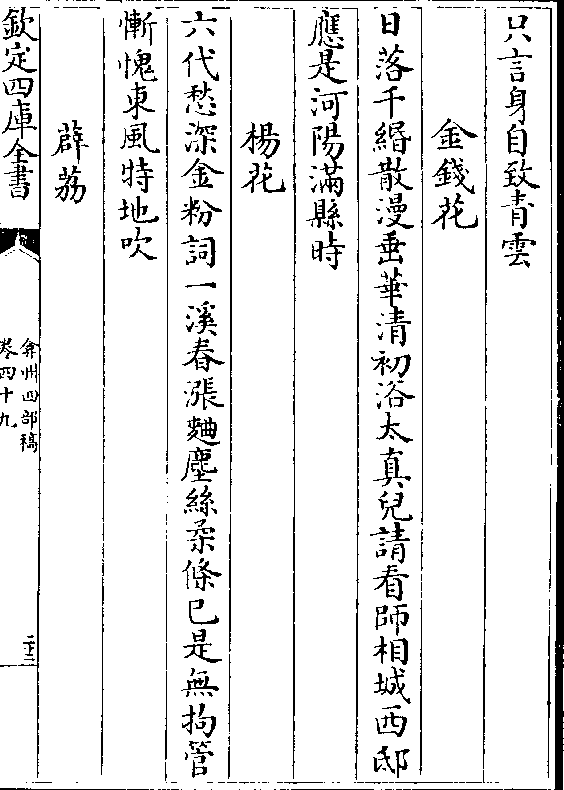 只言身自致青雲
金錢花
日落千緡散漫垂華清初浴太真兒請看師相城西邸
應是河陽滿縣時
楊花
六代愁深金粉詞一溪春漲麯塵絲柔條已是無拘管
慚愧東風特地吹
薜荔
欽定四庫全書
弇州四部稿
卷四十九
二十三